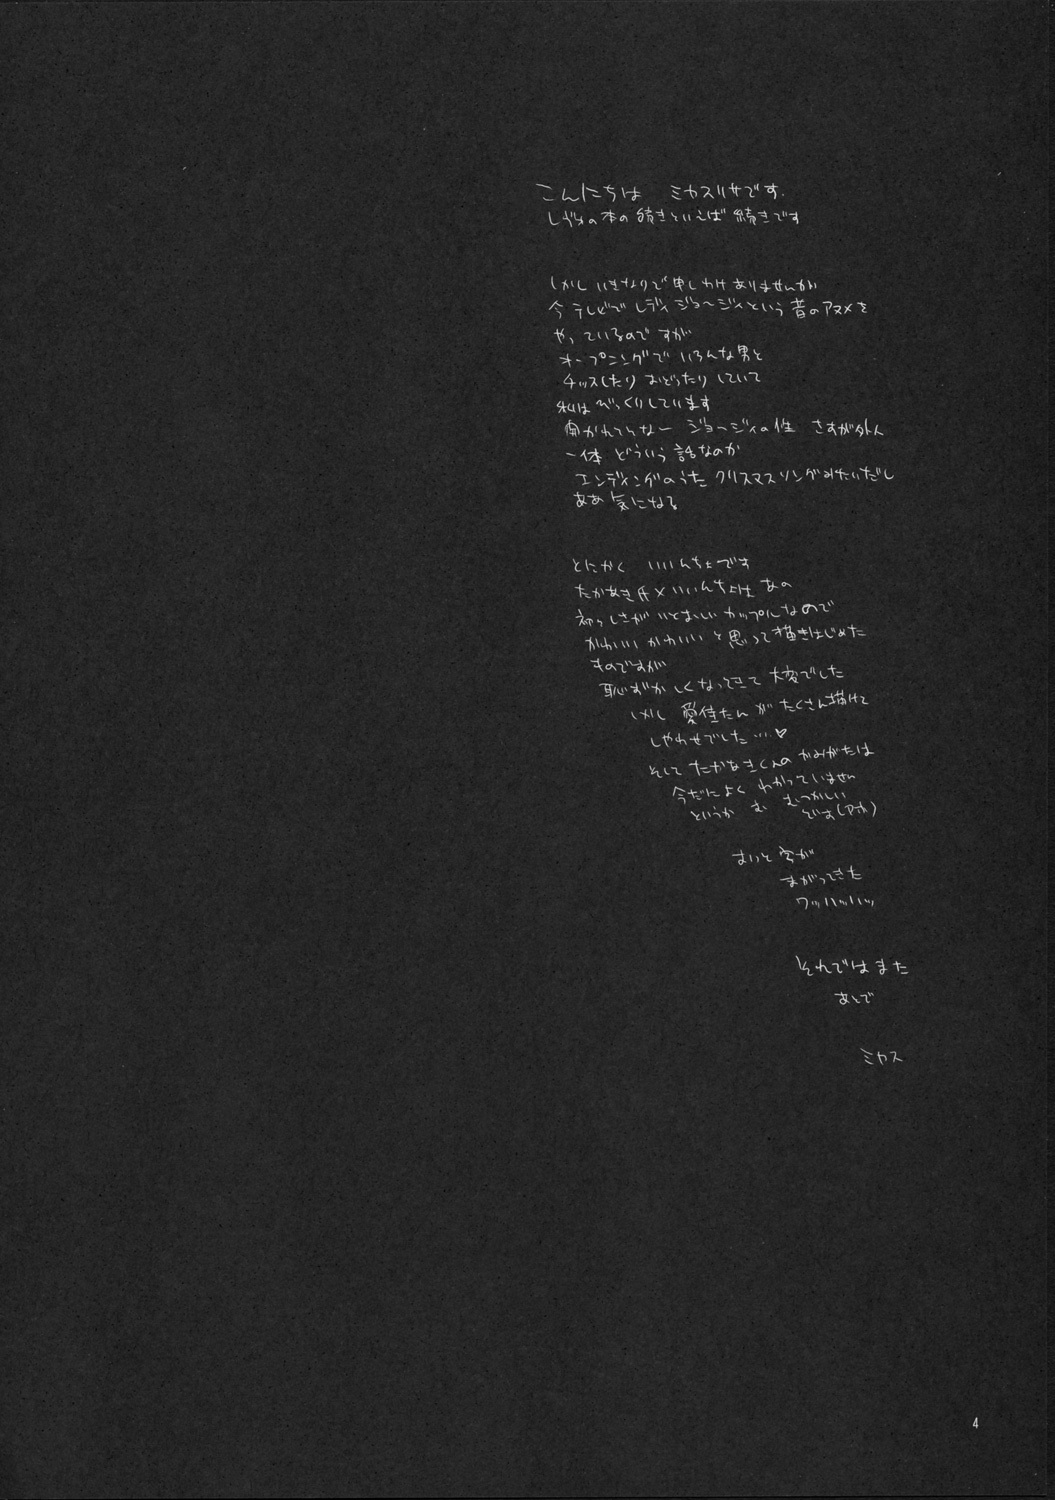 こんにちは ミカスリサです.
の本の続きといえば続きです
しかし いきなりで申しわけありませんが
今テレビでレディジョージィという昔のアニメを
やっているのですが
オープニングで いろんな男と
チッスしたり おどったりしていて
私はびっくりしています
ジョージィの性 さすが外人
一体 どういう話なのか
エンディングのうた クリスマスソングみたいだし
ああ気になる
とにかく いいんちょです
たかあき氏×いいんちょは あの
初々しさがいとおしいカップルなので
かわいいかわいいと思って描きはじめた
ものですが
恥ずかしくなってきて大変でした
しかし 愛佳たんがたくさん描けて
しあわせでした…♡
そしてたかあきくんのかみがたは
今だによく わかっていません
というか む むつかしい
です(アホ)
字が
まがってきた
ワッハッハッ
それではまた
あとで
ミカス
4